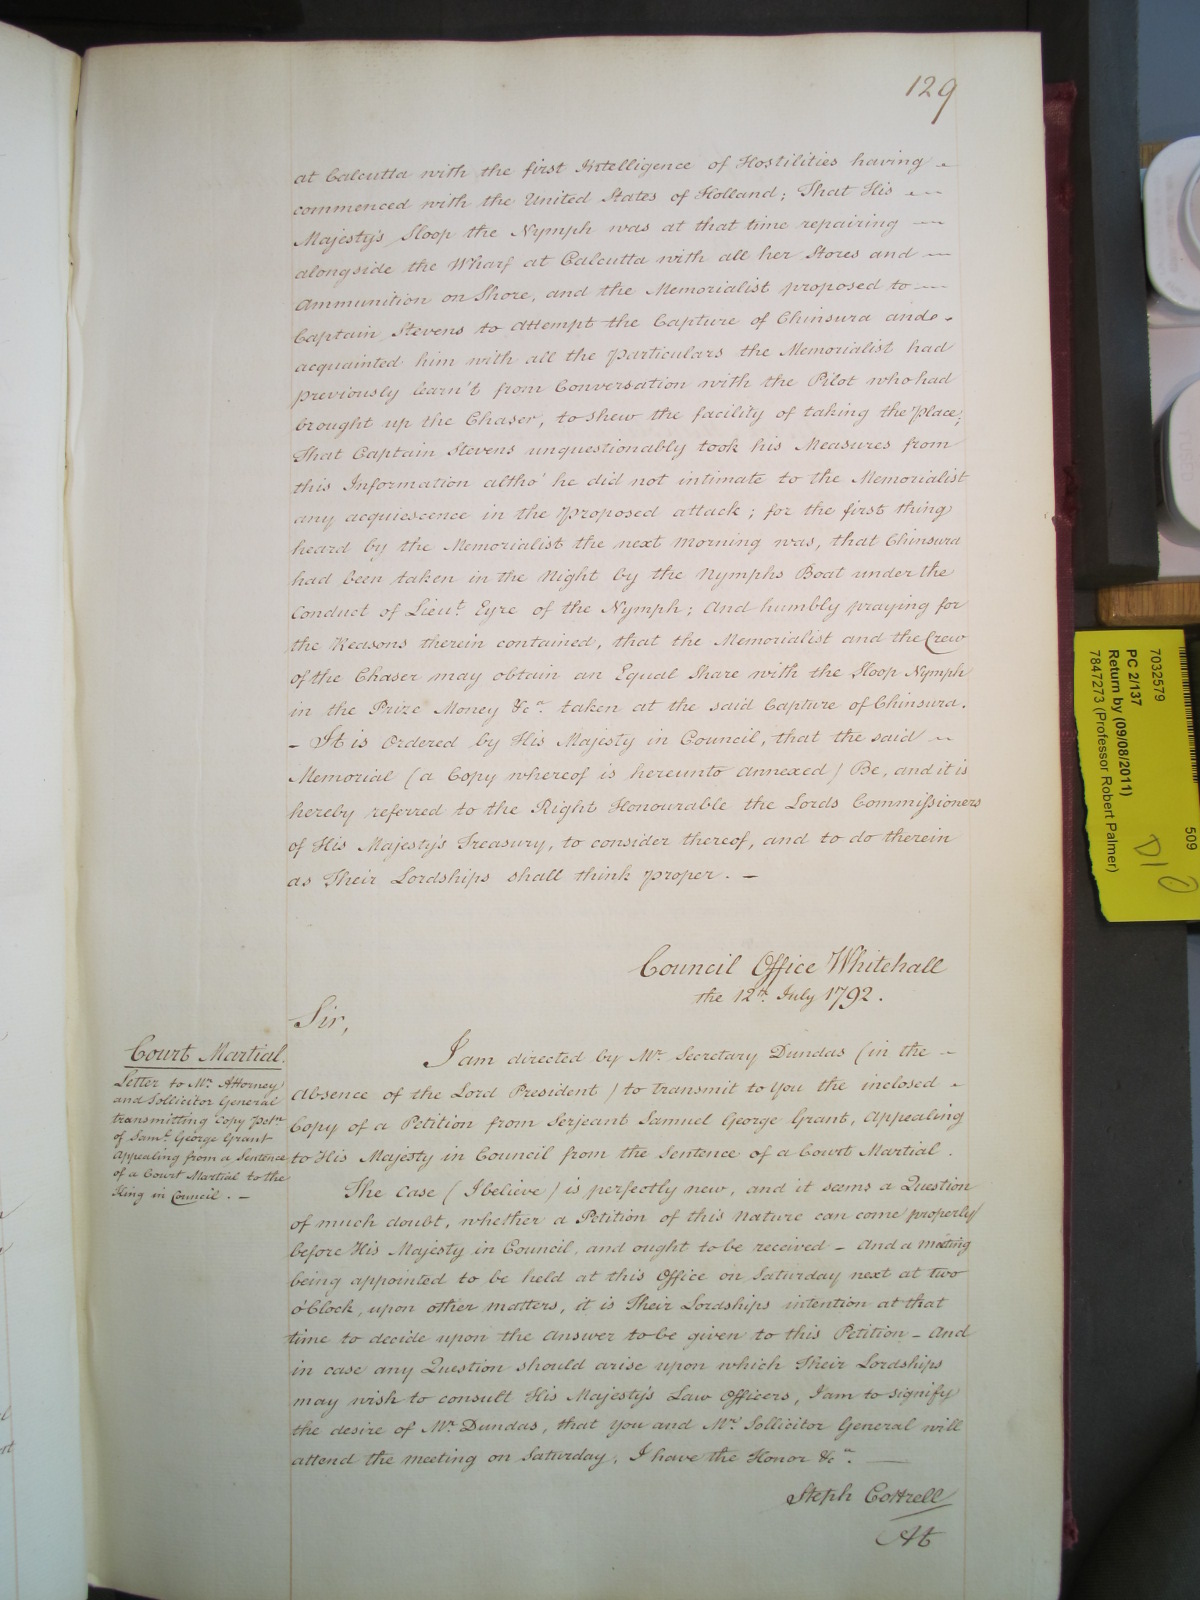 129
at Calcutta with the first Intelligence of Hostilities having
commenced with the United States of Holland; That His
Majesty's Sloop the Nymph was at that time repairing
alongside the Wharf at Calcutta with all her Stores and
Ammunition on Shore, and the Memorialist proposed to
Captain Stevens to attempt the Capture of Chinsura and
acquainted him with all the Particulars the Memorialist had
previously learn't from Conversation with the Pilot who had
brought up the Chaser, to shew the facility of taking the Place;
That Captain Stevens unquestionably took his Measures from
this Information altho' he did not intimate to the Memorialist
any acquiescence in the proposed attack; for the first thing
heard by the Memorialist the next Morning was, that Chinsura
had been taken in the Night by the Nymphs Boat under the
Conduct of Lieut. Eyre of the Nymph; And humbly praying for
the Reasons therein contained, that the Memorialist and the Crew
of the Chaser may obtain an Equal Share with the Sloop Nymph
in the Prize Money &ca. taken at the said Capture of Chinsura.
- It is Ordered by His Majesty in Council, that the said
Memorial (a Copy whereof is hereunto annexed) Be, and it is
hereby referred to the Right Honourable the Lords Commissioners
of His Majesty's Treasury, to consider thereof, and to do therein
as Their Lordships shall think proper. -
Council Office Whitehall
the 12th. July 1792.
Sir,
Court Martial.
Letter to Mr. Attorney
and Sollicitor General
transmitting Copy Petn.
of Saml. George Grant
Appealing from a Sentence
of a Court Martial to the
King in Council. -
I am directed by Mr. Secretary Dundas (in the
Absence of the Lord President) to transmit to You the inclosed
Copy of a Petition from Serjeant Samuel George Grant, Appealing
to His Majesty in Council from the Sentence of a Court Martial.
The Case (I believe) is perfectly new, and it seems a Question
of much doubt, whether a Petition of this Nature can come properly
before His Majesty in Council, and ought to be received - And a meeting
being appointed to be held at this Office on Saturday next at two
o'Clock, upon other matters, it is Their Lordships intention at that
time to decide upon the Answer to be given to this Petition - And
in case any Question should arise upon which Their Lordships
may wish to consult His Majesty's Law Officers, I am to signify
the desire of Mr. Dundas, that you and Mr. Sollicitor General will
attend the meeting on Saturday. I have the Honor &ca.
Steph Cottrell
At
7032579
PC 2/137
Return by (09/08/2011)
7847273 (Professor Robert Palmer)
509